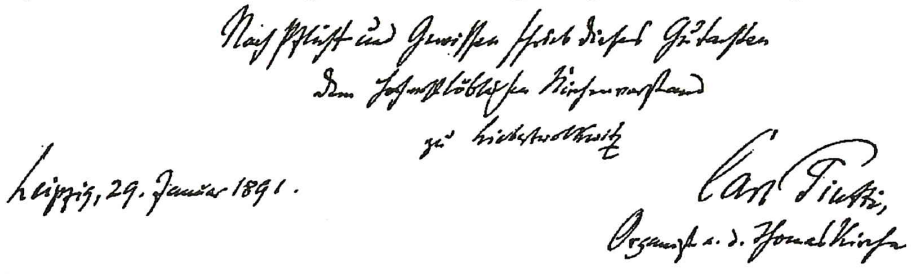 Nach Pflicht und Gewissen schrieb dieses Gutachten
dem hochwohllöblichen Kirchenvorstand
zu Liebertwolkwitz
Leipzig, 29. Januar 1891.
Carl Piutti,
Organist a. d. Thomaskirche